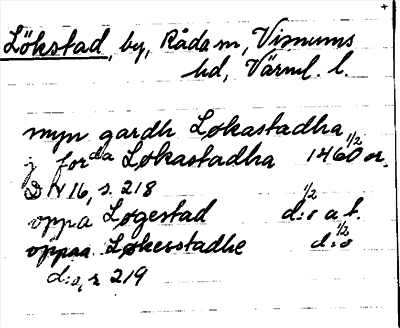 Lökstad, by, Råda sn, Visnums
hd, Värml. l.
myn gardh Løkastadha
j forda Løkastadha 1460 1/2 or.
16, s. 218
oppa Løgestad d:o 1/2 a. t.
oppaa Løkesstadhe d:o 1/2
d:o, s. 219